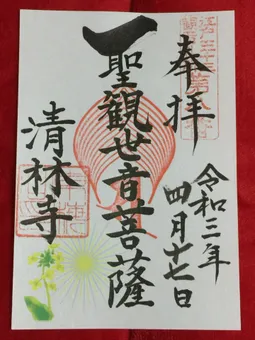 奉拝
令和三年
四月十七日
聖観世音菩薩
清林寺